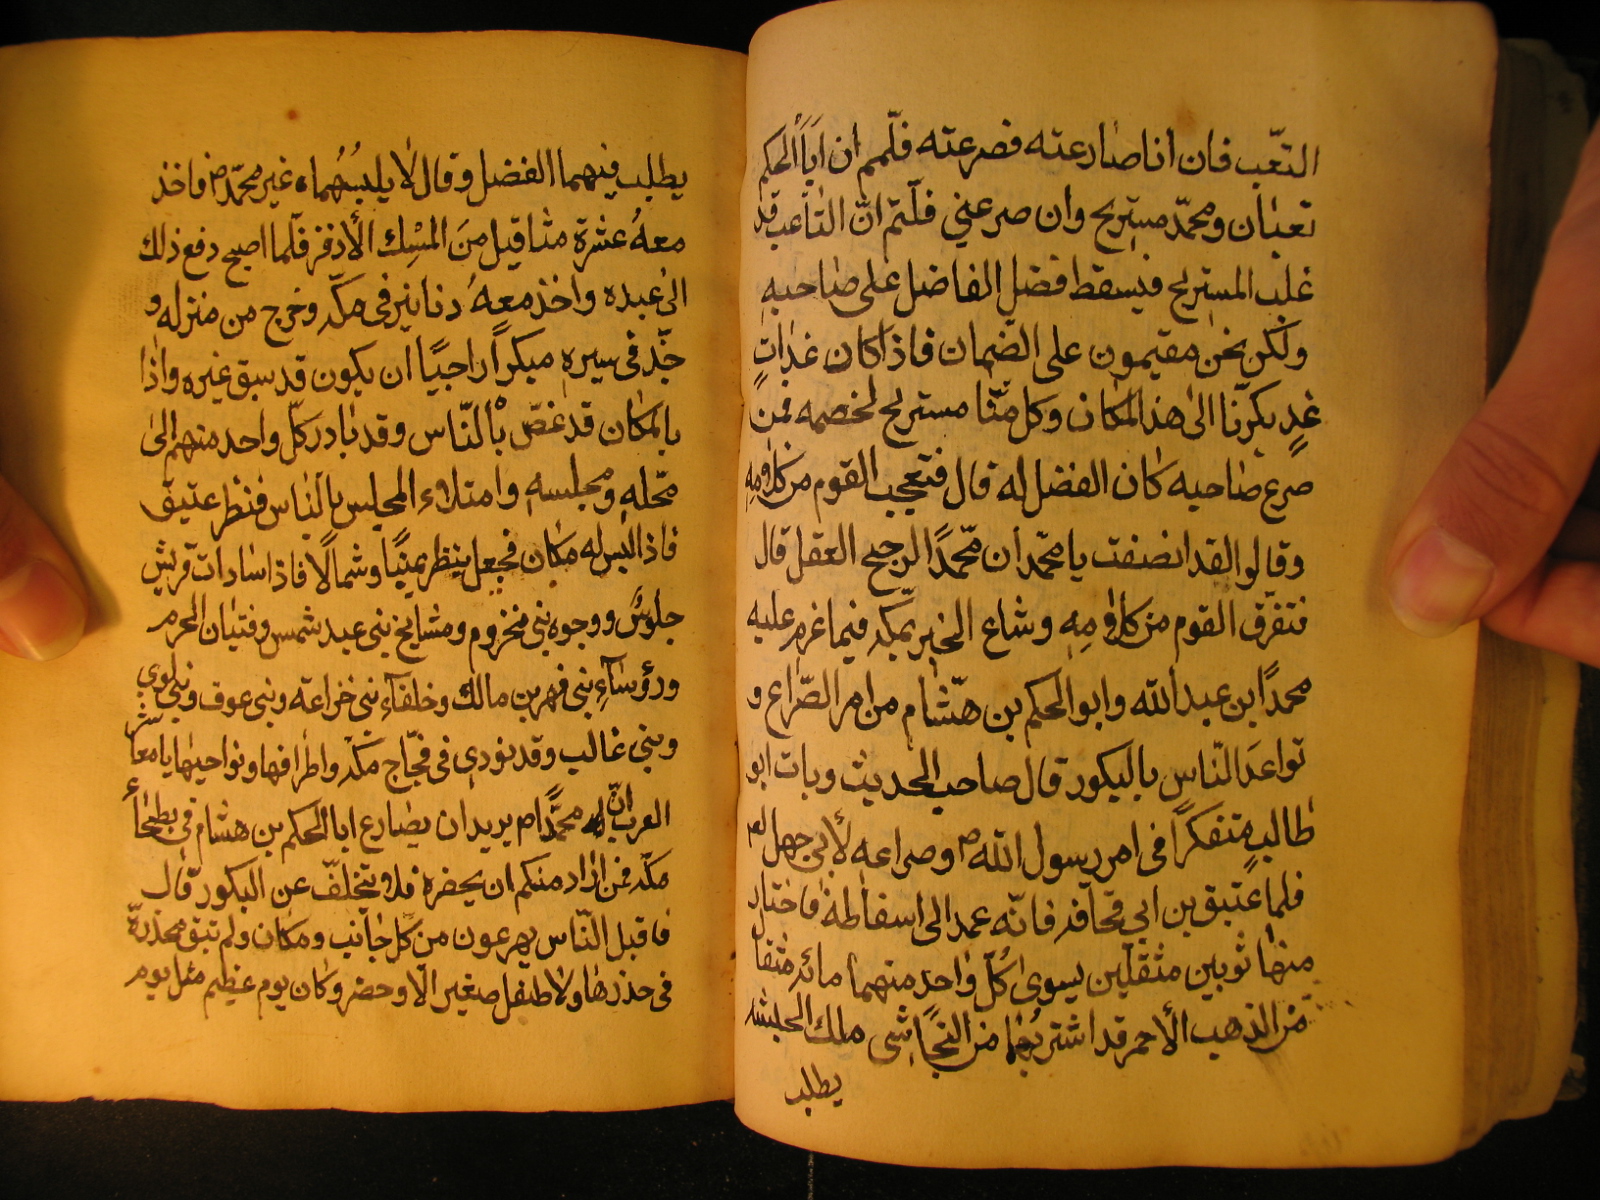 التعب فان انا صارعته فصرعته فلتم ان ابا الحكم
تعبان ومحمد مستريح وان صرعني فلتم ان التاعب قد
غلب المستريح فيسقط فضل الفاضل على صاحبه
ولكن نحن مقيمون على الضمان فاذا كان غدات
غد بكرنا الى هذا المكان وكل منا مستريح لخصمه فمن
صرع صاحبه كان الفضل له قال فتعجب القوم من كلامه
وقالوا لقد انصفت يا محمد ان محمدا لرجيح العقل قال
فتفرق القوم من كلامه وشاع الخبر بمكه فيما غرم عليه
محمدا ابن عبد الله وابو الحكم بن هشام من امر الصراع و
تواعد الناس بالبكور قال صاحب الحديث وبات ابو
طالب متفكرا في امر رسول الله ص وصراعه لأبي جهل لعم
فلما عتيق بن ابي قحافه فانه عمد الى اسفاطه فاختار
منها ثوبين مثقلين يسوى كل واحد منهما مائه مثقال
من الذهب الأحمر قد اشتريهما من النجاشي ملك الحبشه
يطلب
يطلب فيهما الفضل وقال لا يلبسهما غير محمد ص فاخذ
معه عشرة مثاقيل من المسك الأدفر فلما اصبح دفع ذلك
الى عبده واخذ معه دنانير في مكه وخرج من منزله و
جد في سيره مبكرا راجيا ان يكون قد سبق غيره واذا
بالمكان قد غص بالناس وقد بادر كل واحد منهم الى
محله ومجلسه وامتلاء المجلس بالناس فنظر عتيق
فاذا ليس له مكان فجعل ينظر يمنيا وشمالا فاذا سادات قريش
جلوس ووجوه بني مخزوم ومشايخ بني عبد شمس وفتيان الحرم
ورؤساء بني فهر بن مالك وخلفاء بني خزاعه وبني عوف وبني لوي
وبني غالب وقد نودي في فجاج مكه واطرافها ونواحيها يا معاشر
العرب ان محمدا م يريد ان يصارع ابا الحكم بن هشام في بطحاء
مكه فمن اراد منكم ان يحضره فلا يتخلف عن البكور قال
فاقبل الناس يهرعون من كل جانب ومكان ولم تبق مخدرة
في خدرها ولا طفل صغير الا وحضر وكان يوم عظيم مثل يوم